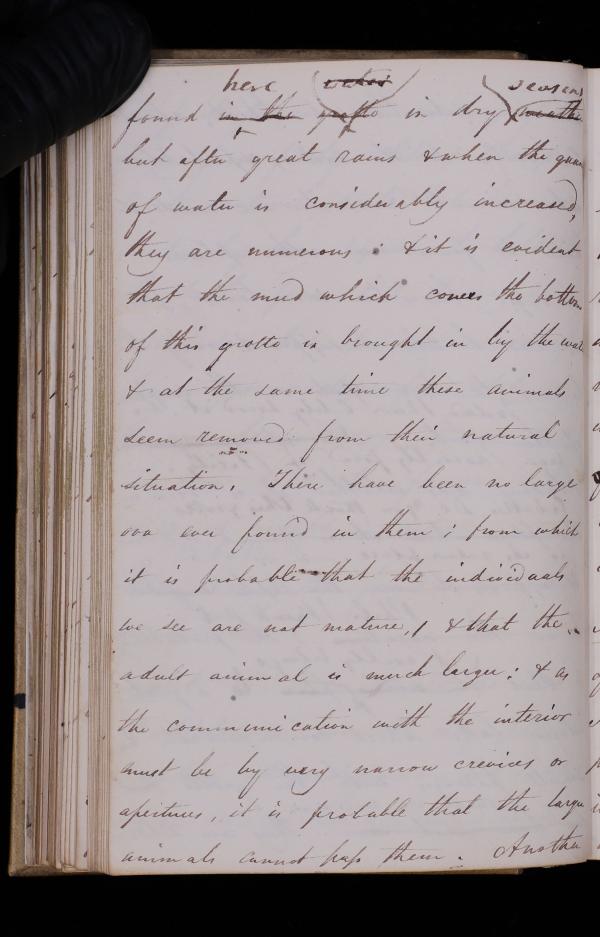 here seasons
found in the grotto in dry weathe
but after great rains & when the quan
of water is considerably increased,
they are numerous : & it is evident
that the mud which covers the bottom
of this grotto is brought in by the wate
& at the same time these animals
seem removed from their natural
situation. There have been no large
ova ever found in them ; from which
it is probable that the individuals
we see are not mature, & that the
adult animal is much larger : & as
the communication with the interior
must be by very narrow crevices or
apertures, it is probable that the large
animals cannot pass them. Another